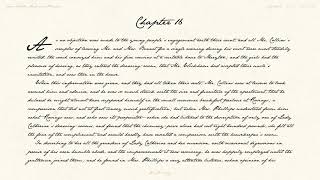 Chapter 16
As no objection was made to the young people's engagement with their aunt, and all Mr. Collins's
scruples of leaving Mr. and Mrs. Bennet for a single evening during his visit were most steadily
resisted, the coach conveyed him and his five cousins at a suitable hour to Meryton; and the girls had the
pleasure of hearing, as they entered the drawing-room, that Mr. Wickham had accepted their uncle's
invitation, and was then in the house.
When this information was given, and they had all taken their seats, Mr. Collins was at leisure to look
around him and admire, and he was so much struck with the size and furniture of the apartment, that he
declared he might almost have supposed himself in the small summer breakfast parlour at Rosings; a
comparison that did not at first convey much gratification; but when Mrs. Phillips understood from him
what Rosings was, and who was its proprietor—when she had listened to the description of only one of Lady
Catherine's drawing-rooms, and found that the chimney-piece alone had cost eight hundred pounds, she felt all
the force of the compliment, and would hardly have resented a comparison with the housekeeper's room.
In describing to her all the grandeur of Lady Catherine and her mansion, with occasional digressions in
praise of his own humble abode, and the improvements it was receiving, he was happily employed until the
gentlemen joined them; and he found in Mrs. Phillips a very attentive listener, whose opinion of his